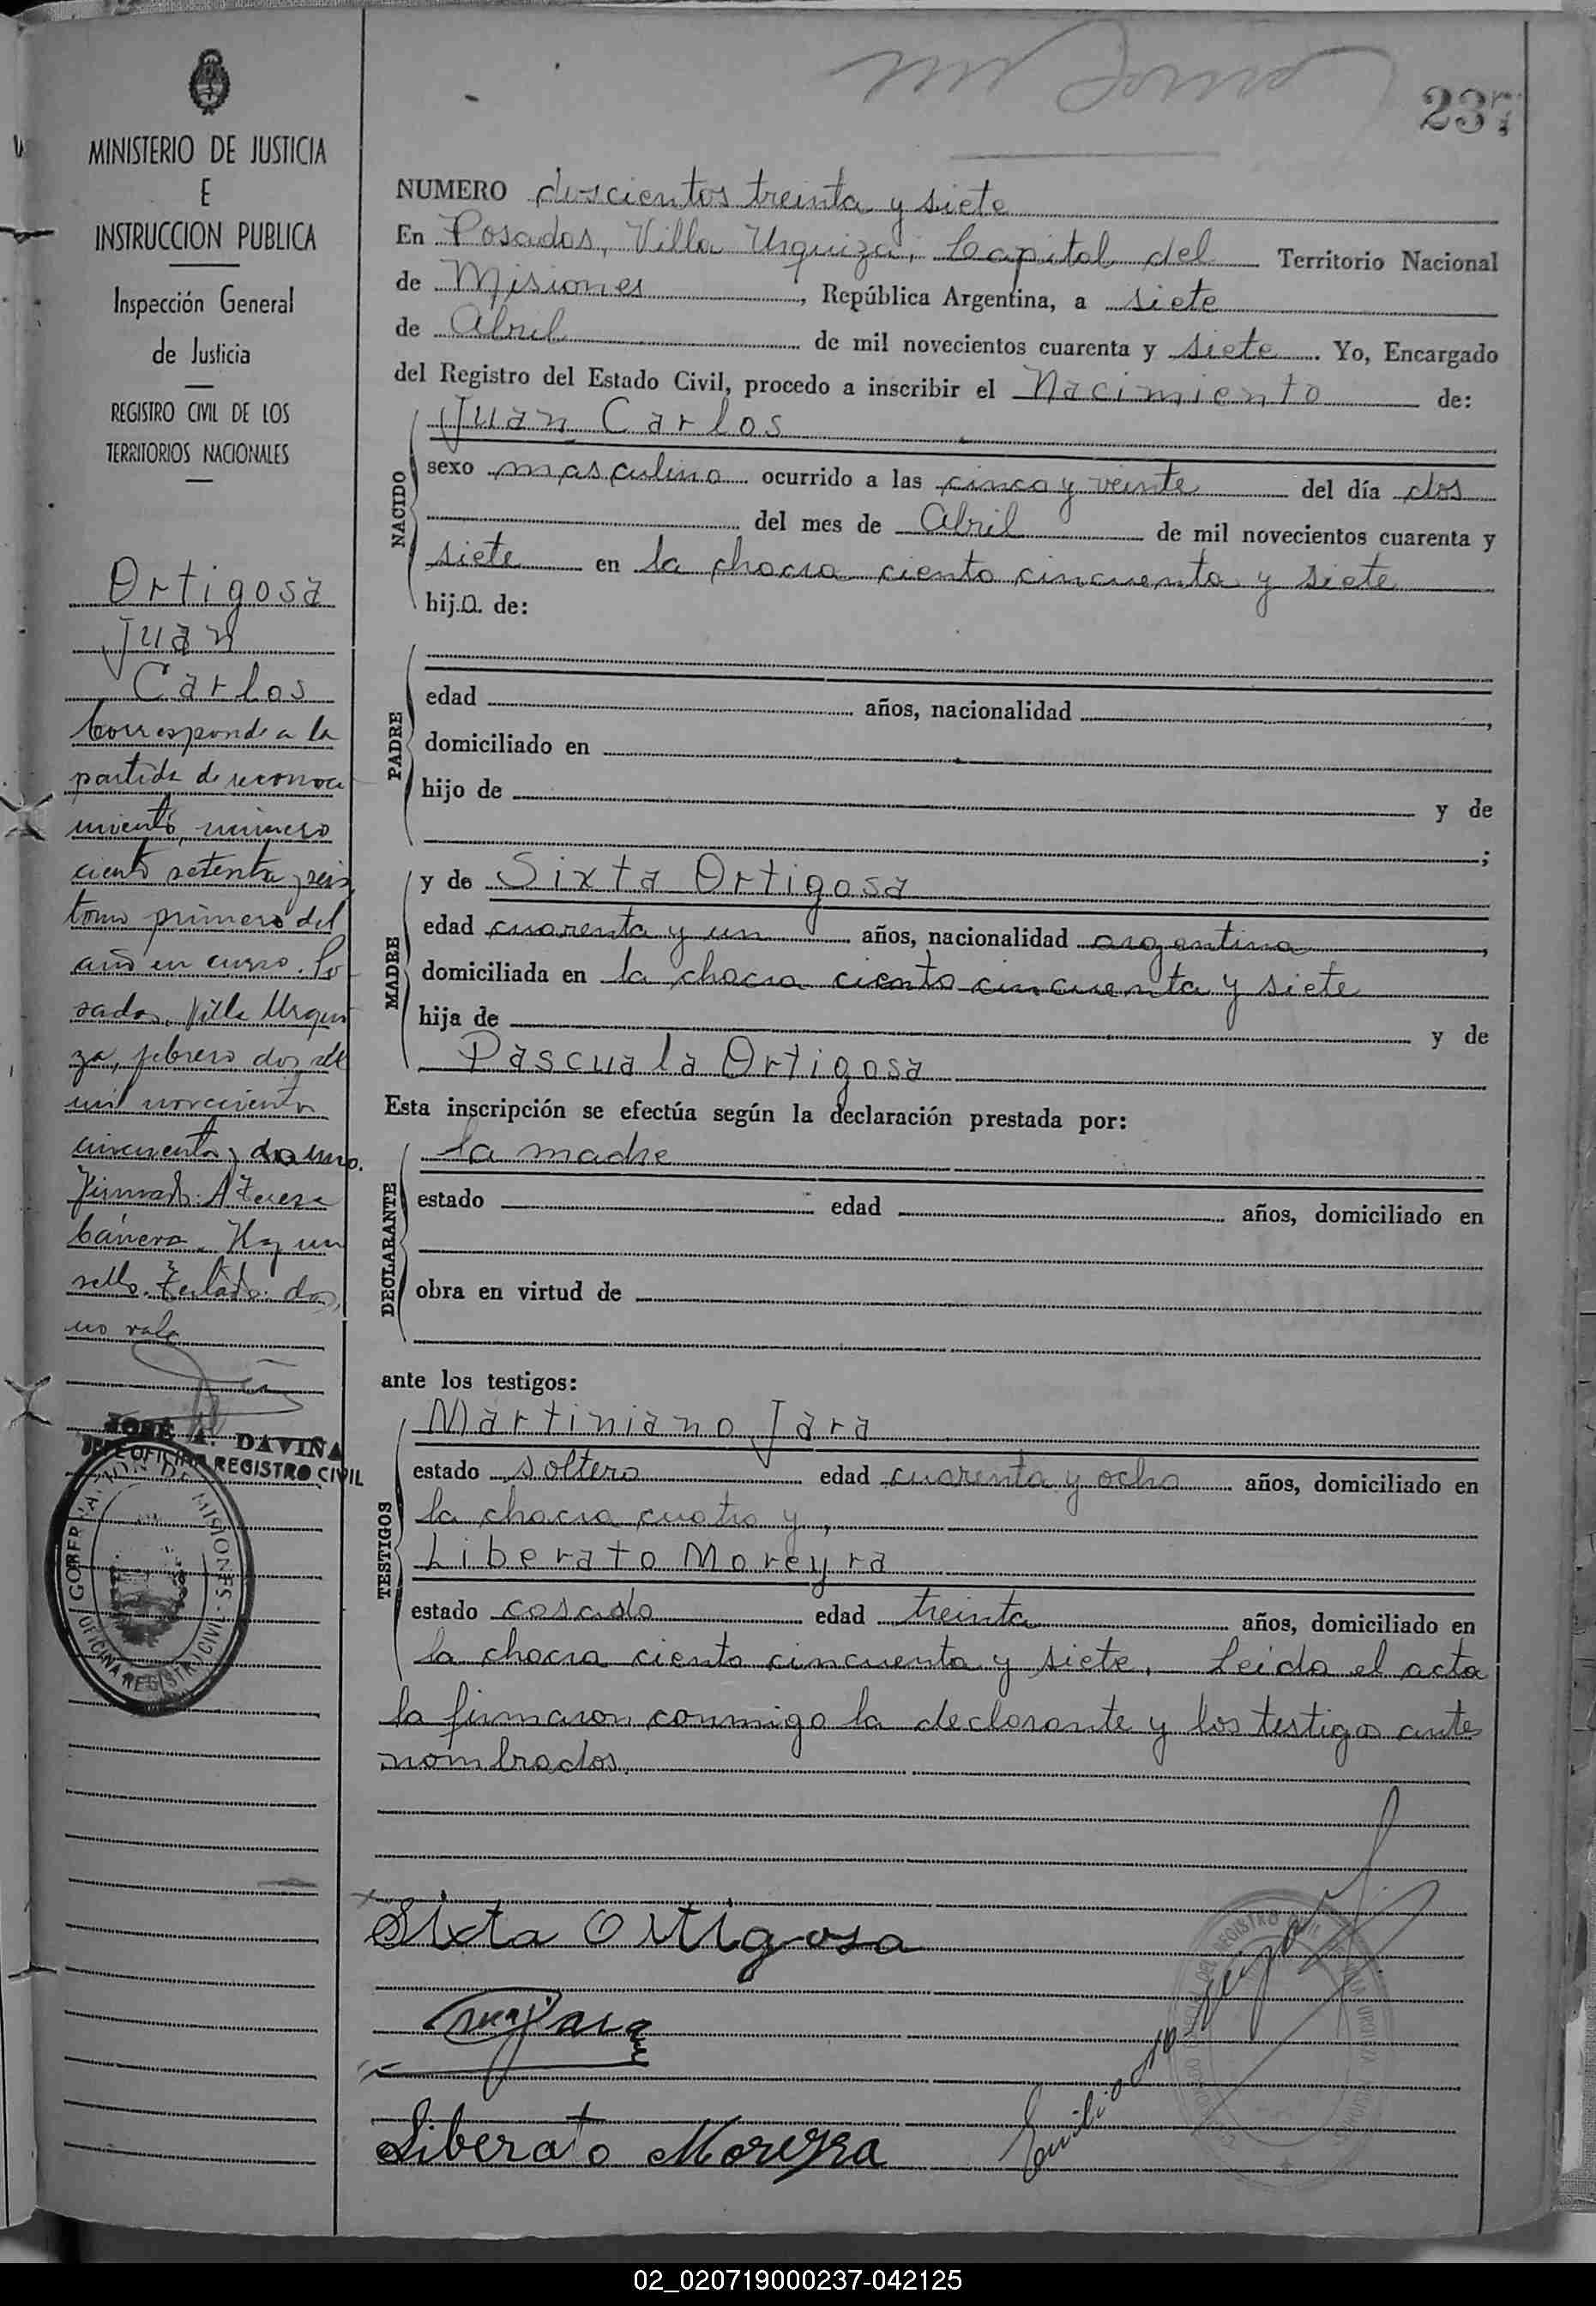 237
MINISTERIO DE JUSTICIA
E
INSTRUCCION PUBLICA
Inspección General
de Justicia
REGISTRO CIVIL DE LOS
TERRITORIOS NACIONALES
Ortigosa
Juan
Carlos
Corresponde a la
partida de reconoci
miento, número
ciento setenta y seis
tomo primero del
año en curso. Po
sadas, Villa Urqui
za, febrero dos de
mil novecientos
cincuenta y dos uno.
Firmado: A. Teresa
Cánera. Hay un
sello. Testado: dos,
no vale
JOSÉ A. DAVIÑA
JEFE OFICINA REGISTRO CIVIL
GOBERNACION DE MISIONES
OFICINA REGISTRO CIVIL
NUMERO doscientos treinta y siete
En Posadas, Villa Urquiza, Capital del Territorio Nacional
de Misiones, República Argentina, a siete
de Abril de mil novecientos cuarenta y siete. Yo, Encargado
del Registro del Estado Civil, procedo a inscribir el Nacimiento de:
NACIDO
Juan Carlos
sexo masculino ocurrido a las cinco y veinte del día dos
del mes de Abril de mil novecientos cuarenta y
siete en la chacra ciento cincuenta y siete
hijo. de:
PADRE
edad años, nacionalidad ,
domiciliado en
hijo de y de
;
MADRE
y de Sixta Ortigosa
edad cuarenta y un años, nacionalidad argentina,
domiciliada en la chacra ciento cincuenta y siete
hija de y de
Pascuala Ortigosa
Esta inscripción se efectúa según la declaración prestada por:
DECLARANTE
la madre
estado edad años, domiciliado en
obra en virtud de
ante los testigos:
TESTIGOS
Martiniano Jara
estado soltero edad cuarenta y ocho años, domiciliado en
la chacra cuatro y,
Liberato Moreyra
estado casado edad treinta años, domiciliado en
la chacra ciento cincuenta y siete. Leida el acta
la firmaron conmigo la declarante y los testigos ante
nombrados.
Sixta Ortigosa
Liberato Moreyra
Emilio
02_020719000237-042125